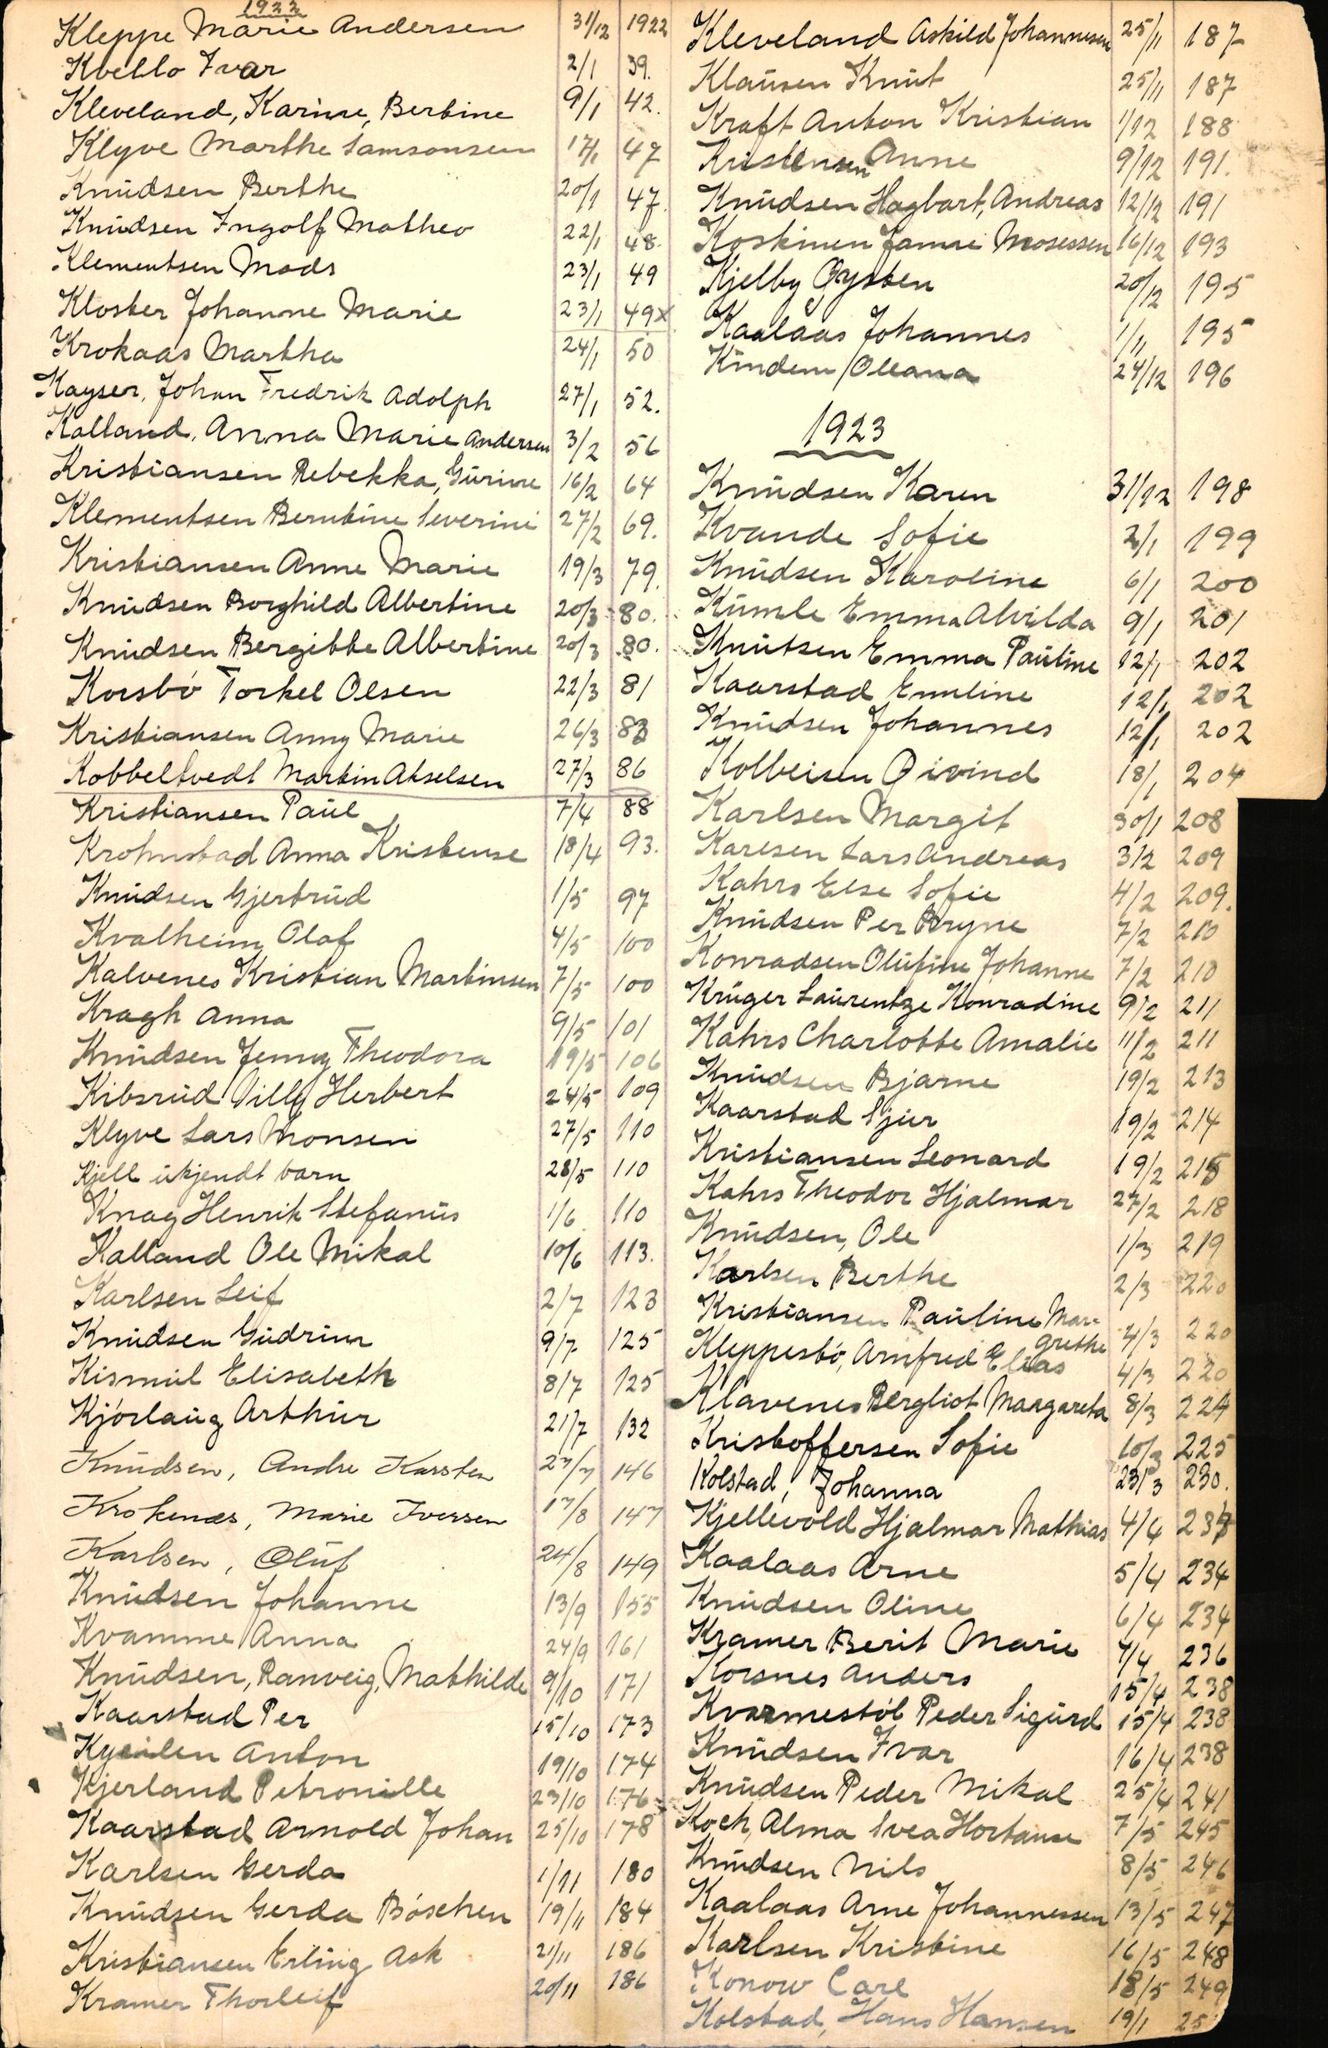 1922
Kleppe Marie Andersen 31/12 1922
Kvello Ivar 2/1 39.
Kleveland, Karine, Bertine 9/1 42.
Klyve Marthe Samsonsen 17/1 47
Knudsen Berthe 20/1 47.
Knudsen Ingolf Matheo 22/1 48.
Klementsen Mads 23/1 49
Kloster Johanne Marie 23/1 49x
Krokaas Martha 24/1 50
Kayser, Johan Fredrik Adolph 27/1 52.
Kalland, Anna Marie Andersen 3/2 56
Kristiansen Rebekka, Gurine 16/2 64
Klementsen Berntine Severini 27/2 69.
Kristiansen Anne Marie 19/3 79.
Knudsen Borghild Albertine 20/3 80.
Knudsen Bergitte Albertine 20/3 80.
Korsbö Torkel Olsen 22/3 81
Kristiansen Anny Marie 26/3 83
Kobbeltvedt Martin Akselsen 27/3 86
Kristiansen Paul 7/4 88
Krohnstad Anna Kristense 18/4 93.
Knudsen Gjertrud 1/5 97
Kvalheim Olaf 4/5 100
Kalvenes Kristian Martinsen 7/5 100
Kragh Anna 9/5 101
Knudsen Jenny Theodora 19/5 106
Kibsrud Villy Herbert 24/5 109
Klyve Lars Monsen 27/5 110
Kjell ukjendt barn 28/5 110
Knag Henrik Stefanus 1/6 110
Kalland Ole Mikal 10/6 113.
Karlsen Leif 2/7 123
Knudsen Gudrun 9/7 125
Kismul Elisabeth 8/7 125
Kjörlaug Arthur 21/7 132
Knudsen, Andre Karsten 27/7 146
Krokenæs, Marie Iversen 17/8 147
Karlsen, Oluf 24/8 149
Knudsen Johanne 13/9 155
Kvamme Anna 24/9 161
Knudsen, Ranveig, Mathilde 9/10 171
Kaarstad Per 15/10 173
Anton 19/10 174
Kjerland Petronille 23/10 176
Kaarstad Arnold Johan 25/10 178
Karlsen Gerda 1/11 180
Knudsen Gerda Böschen 19/11 184
Kristiansen Erling Ask 21/11 186
Kramer Thorleif 20/11 186
Kleveland Askild Johannesen 25/11 187
Klausen Knut 25/11 187
Kraft Anton Kristian 1/12 188
Kristensen Anne 9/12 191.
Knudsen Hagbart, Andreas 12/12 191
Koskinen Mosessen 16/12 193
Kjelby Øysten 20/12 195
Kaalaas Johannes 1/11 195
Kindem Oleana 24/12 196
1923
Knudsen Karen 31/12 198
Kvande Sofie 2/1 199
Knudsen Karoline 6/1 200
Kumle Emma Alvilda 9/1 201
Knutsen Emma Pauline 12/1 202
Kaarstad Emeline 12/1 202
Knudsen Johannes 12/1 202
Kolbeisen Øivind 18/1 204
Karlsen Margit 30/1 208
Karlsen Lars Andreas 3/2 209
Kahrs Else Sofie 4/2 209.
Knudsen Per Bryne 7/2 210
Konradsen Olufine Johanne 7/2 210
Krüger Laurentze Konradine 9/2 211
Kahrs Charlotte Amalie 11/2 211
Knudsen Bjarne 19/2 213
Kaarstad Sjur 19/2 214
Kristiansen Leonard 19/2 215
Kahrs Theodor Hjalmar 27/2 218
Knudsen, Ole 1/3 219
Karlsen Berthe 2/3 220
Kristiansen Pauline Mar-
grethe 4/3 220
Kleppestö, Arnfred Elias 4/3 220
Klavenes Bergliot Margareta 8/3 224
Kristoffersen Sofie 10/3 225
Kolstad, Johanna 23/3 230.
Kjellevold Hjalmar Mathias 4/4
Kaalaas Arne 5/4 234
Knudsen Oline 6/4 234
Kramer Berit Marie 7/4 236
Korsnes Anders 15/4 238
Kvarmestöl Peder Sigurd 15/4 238
Knudsen Ivar 16/4 238
Knudsen Peder Mikal 25/4 241
Koch, Alma Svea Hortanse 7/5 245
Knudsen Nils 8/5 246
Kaalaas Arne Johannessen 13/5 247
Karlsen Kristine 16/5 248
Konow Carl 18/5 249
Kolstad, Hans Hansen 19/1 25